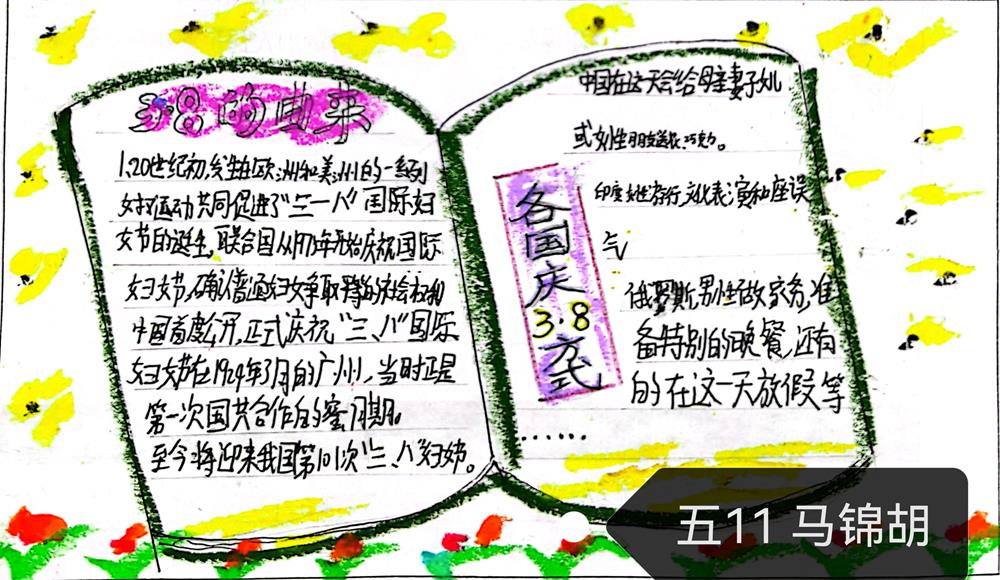 3·8的由来
1.20世纪初,发生在欧洲和美洲的一系列
妇女运动共同促进了“三一八”国际妇
女节的诞生,联合国从1975年开始庆祝国际
妇女节,确认普通妇女争取平等的社会权和
中国首度公开,正式庆祝“三、八”国际
妇女节在1924年3月的广州,当时正是
第一次国共合作的蜜月期。
至今将迎来我国第101次“三、八”妇女节。
中国在这天会给母亲妻子如
或女生朋友送花、巧克力。
各国庆3·8方式
印度女性游行,文化表演和座误
气
俄罗斯,男生做家务,准
备特别的晚餐,还有
的在这一天放假等
......
五11 马锦胡